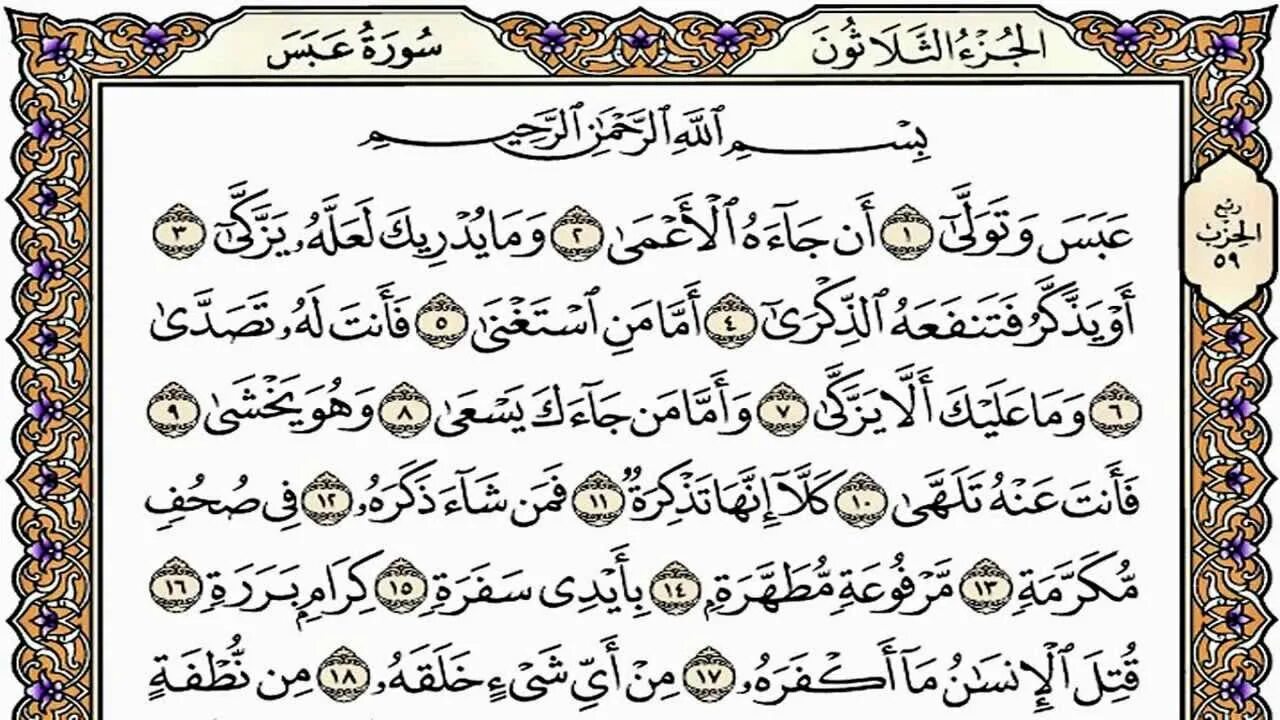 الجُزْءُ الثَّلَاثُونَ
سُورَةُ عَبَسَ
بِسْمِ ٱللَّهِ ٱلرَّحْمَٰنِ ٱلرَّحِيمِ
عَبَسَ وَتَوَلَّىٰٓ ١ أَن جَآءَهُ ٱلْأَعْمَىٰ ٢ وَمَا يُدْرِيكَ لَعَلَّهُۥ يَزَّكَّىٰٓ ٣
أَوْ يَذَّكَّرُ فَتَنفَعَهُ ٱلذِّكْرَىٰٓ ٤ أَمَّا مَنِ ٱسْتَغْنَىٰ ٥ فَأَنتَ لَهُۥ تَصَدَّىٰ
٦ وَمَا عَلَيْكَ أَلَّا يَزَّكَّىٰ ٧ وَأَمَّا مَن جَآءَكَ يَسْعَىٰ ٨ وَهُوَ يَخْشَىٰ ٩
فَأَنتَ عَنْهُ تَلَهَّىٰ ١٠ كَلَّآ إِنَّهَا تَذْكِرَةٌ ١١ فَمَن شَآءَ ذَكَرَهُۥ ١٢ فِى صُحُفٍ
مُّكَرَّمَةٍ ١٣ مَّرْفُوعَةٍ مُّطَهَّرَةٍۭ ١٤ بِأَيْدِى سَفَرَةٍ ١٥ كِرَامٍۭ بَرَرَةٍ ١٦
قُتِلَ ٱلْإِنسَٰنُ مَآ أَكْفَرَهُۥ ١٧ مِنْ أَىِّ شَىْءٍ خَلَقَهُۥ ١٨ مِن نُّطْفَةٍ
ربع
الحزب
٥٩